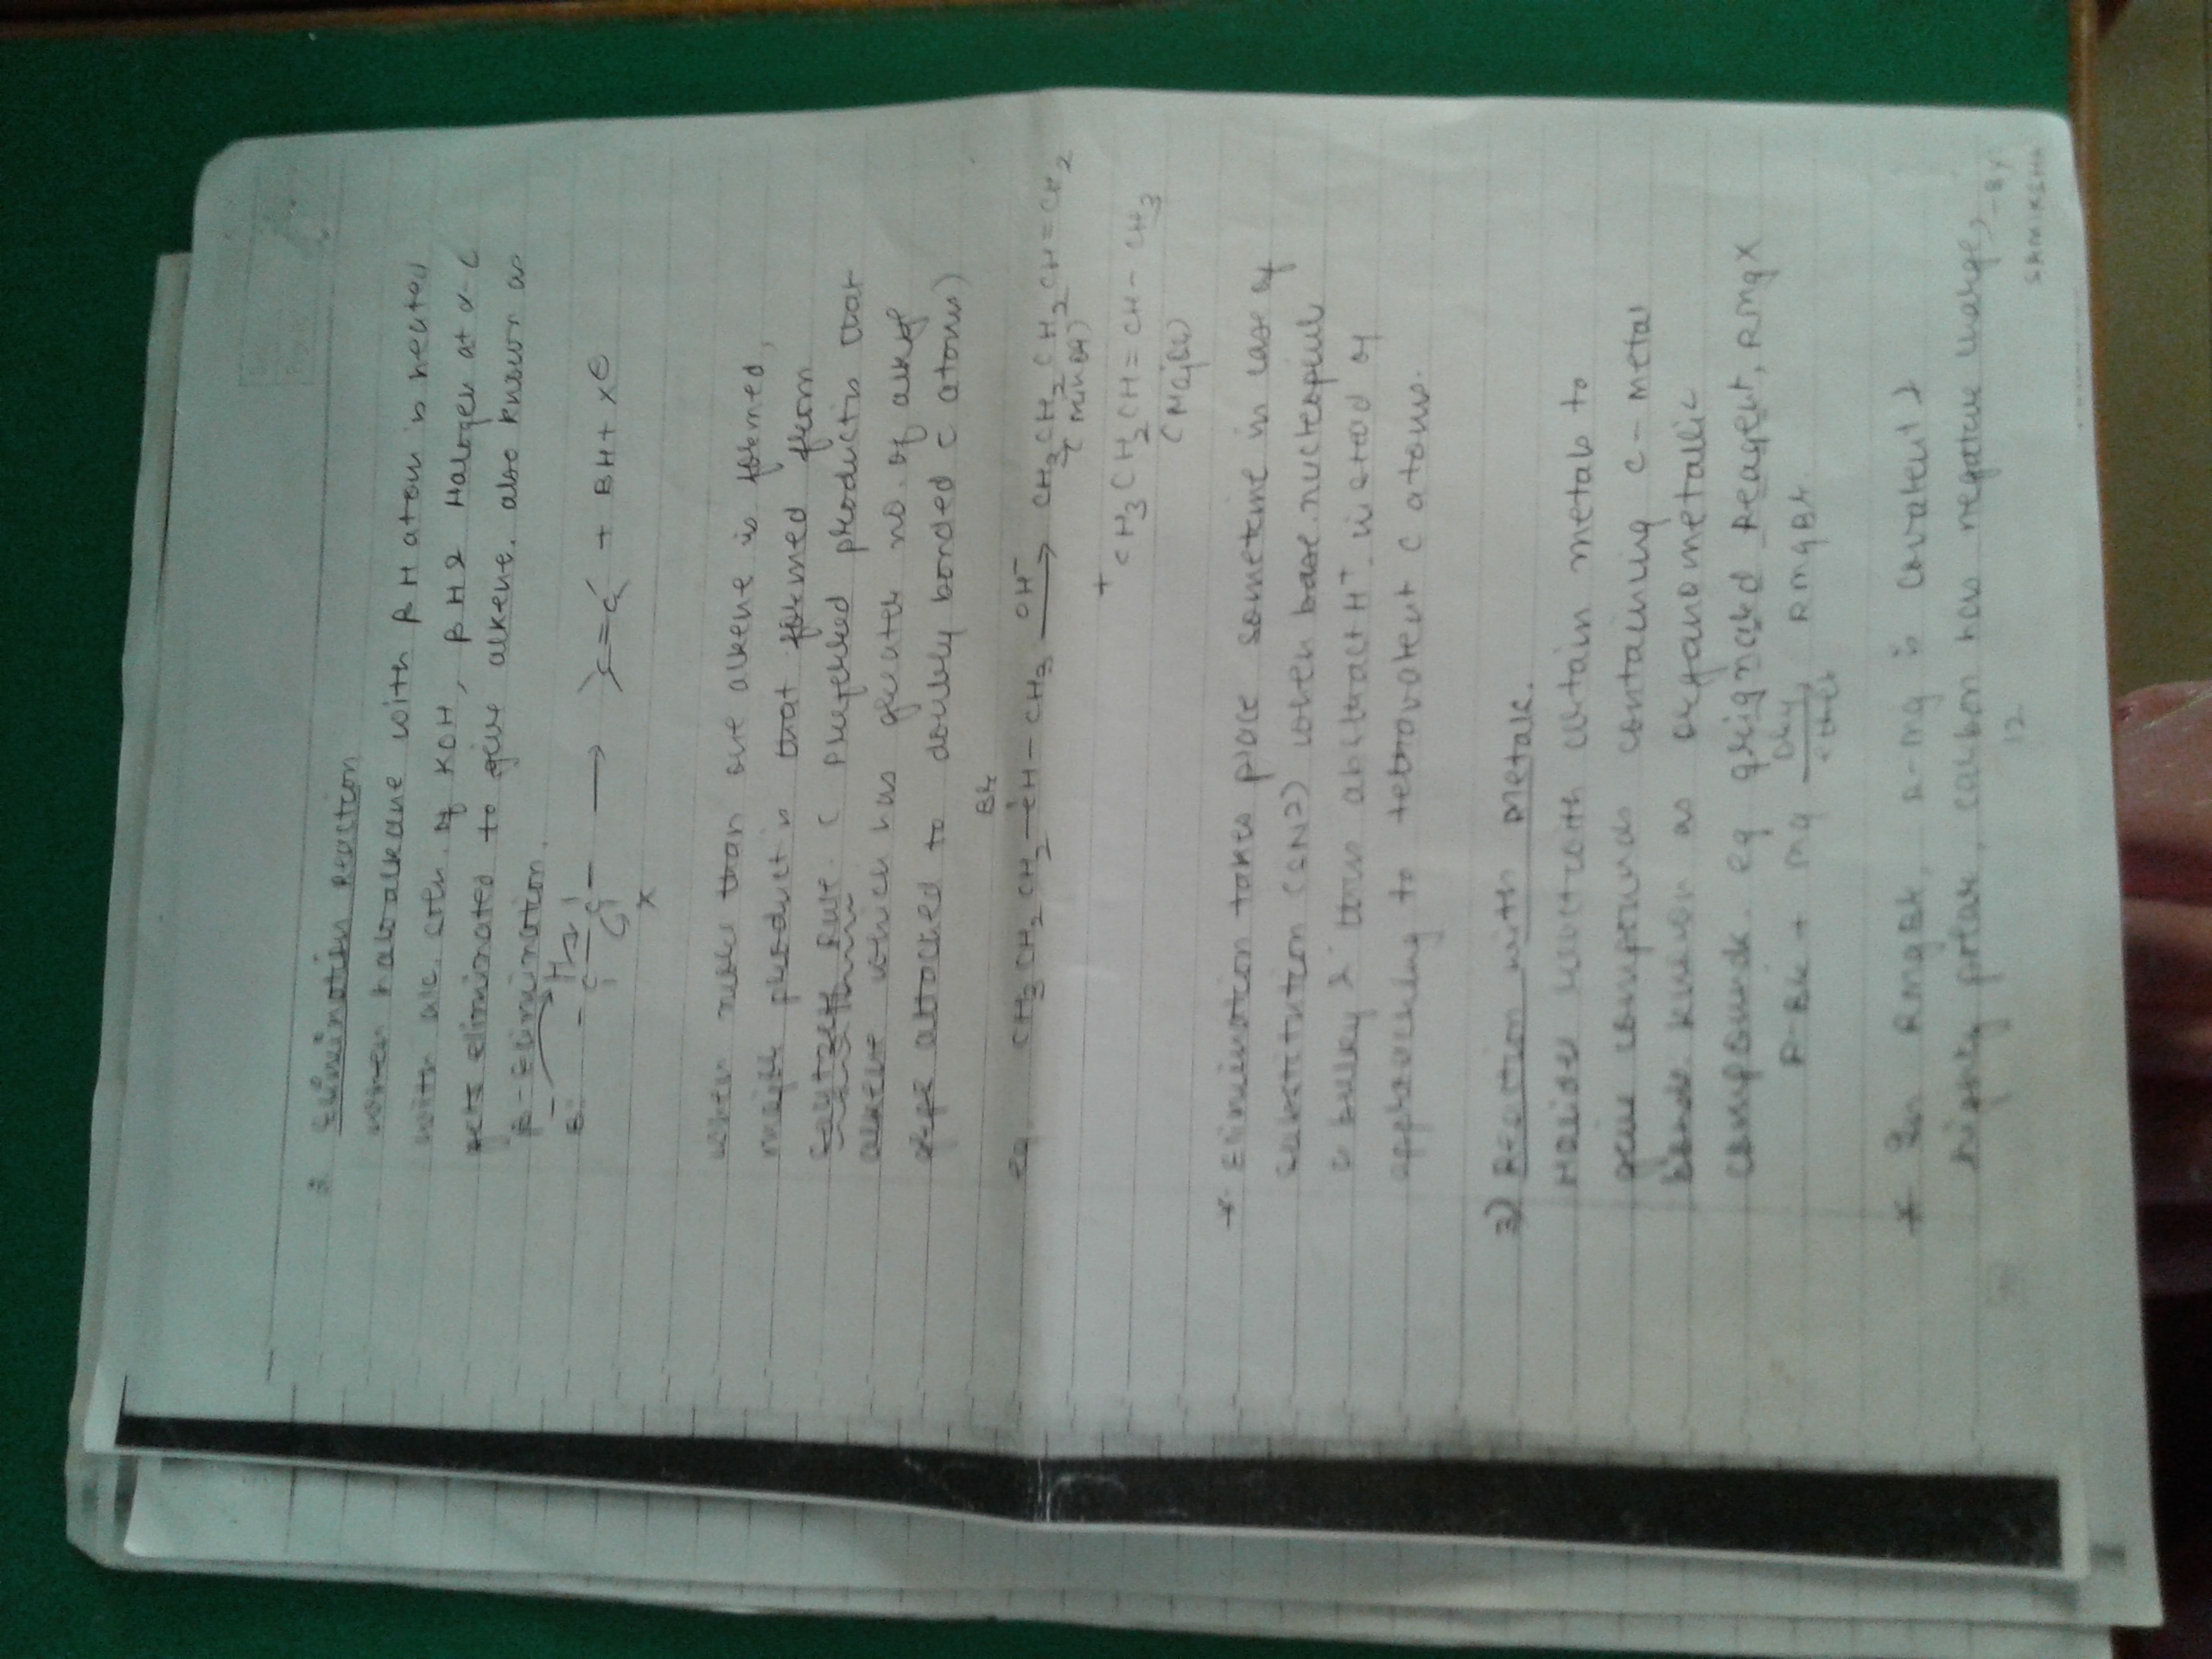 2 Elimination Reaction
when haloalkane with β H atom is heated
with alc. soln. of KOH, β H & Halogen at α-C
gets eliminated to give alkene. also known as
β-Elimination.
B: H
-C-C- → C=C + BH + X⊖
X
when more than one alkene is formed,
major product is that formed from
Saytzeff Rule. (preferred product is that
alkene which has greater no. of alkyl
grps attached to doubly bonded C atoms)
Br
eg. CH3CH2CH2-CH-CH3 OH⁻→ CH3CH2CH2CH=CH2
(minor)
+
CH3CH2CH=CH-CH3
(Major)
* Elimination takes place sometime in case of
substitution (SN2) when base nucleophile
is bulky & thus abstract H⁺ instead of
approaching to tetravalent C atoms.
3) Reaction with Metals.
Halides react with certain metals to
give compounds containing C-metal
bonds known as organometallic
compounds. eg grignard Reagent, RMgX
R-Br + Mg Dry ether RMgBr.
* In RMgBr, R-Mg is covalent &
highly polar, carbon has negative charge,
12
-By
SAMIKSHA